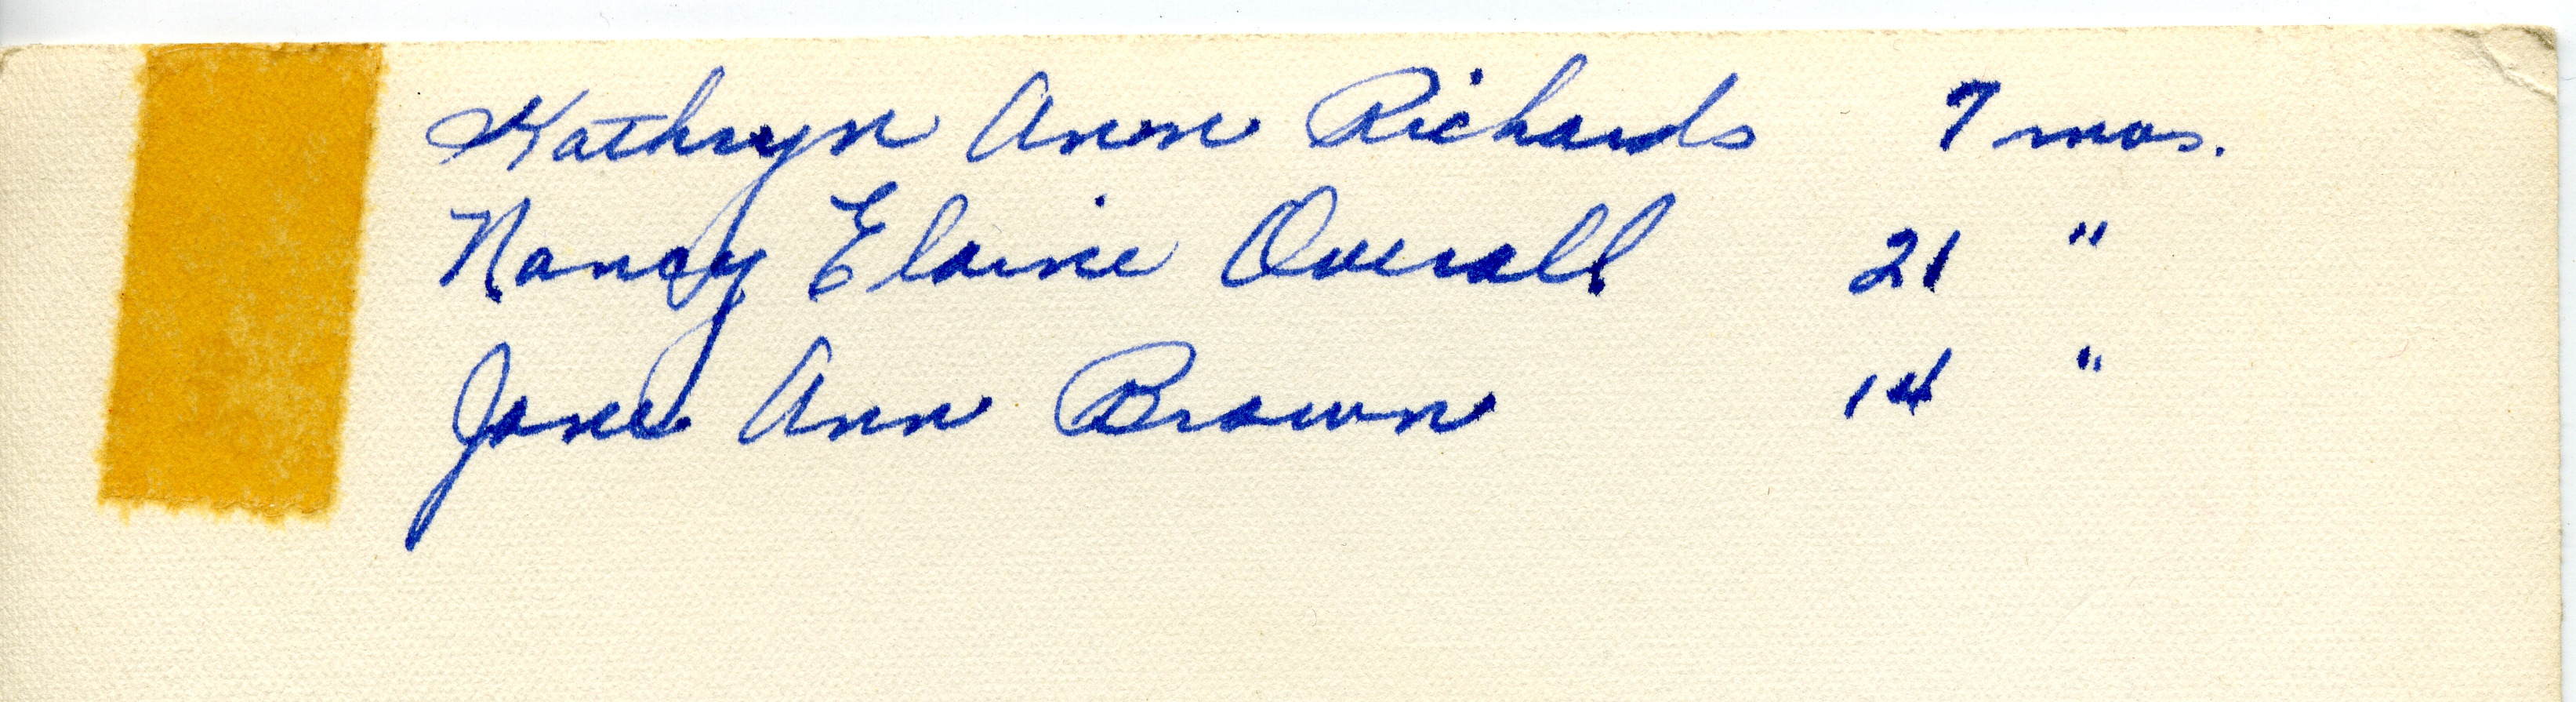 Kathryn Ann Richards 7 mos.
Nancy Elaine Overall 21 "
Jane Ann Brown 14 "